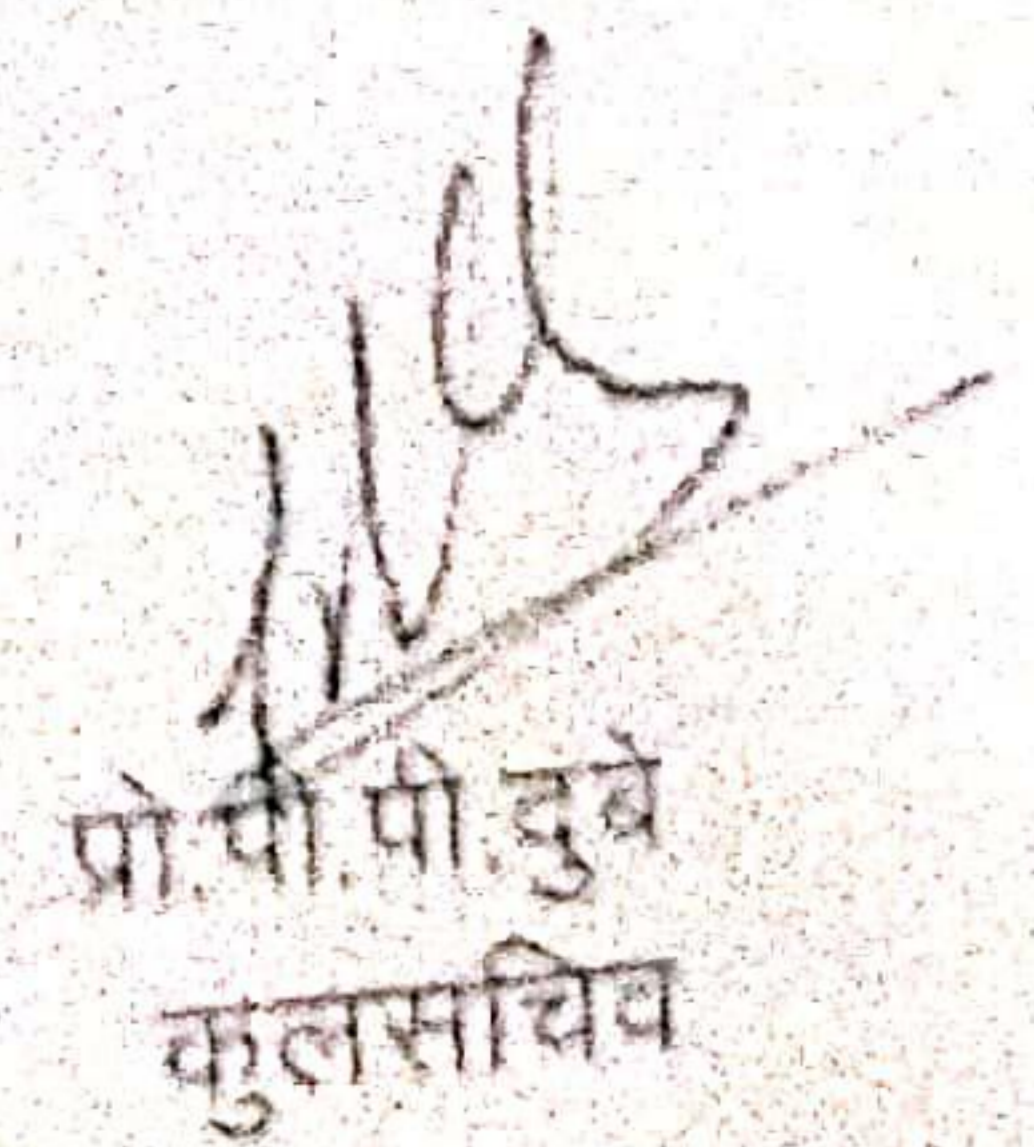 प्रो.पी.पी.दुबे
कुलसचिव